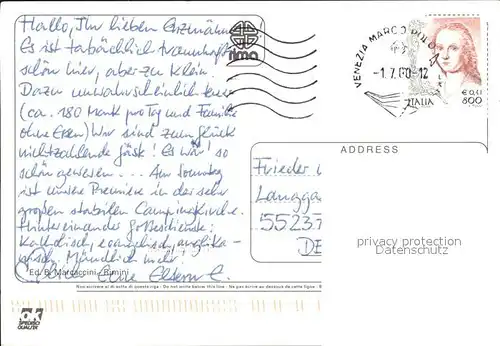 Hallo, Ihr lieben
Es ist tatsächlich traumhaft
schön hier, aber zu klein.
Dazu unwahrscheinlich teuer
(ca. 180 Mark pro Tag und Familie
ohne Essen) Wir sind zum Glück
nichtzahlende Gäste! Es wär' so
schön gewesen ... Am Sonntag
ist unsere Premiere in der sehr
großen stabilen Campingkirche.
Hintereinander Gottesdienste:
Katholisch, evangelisch, anglika-
nisch. Mündlich mehr!
Eure Eltern
Ed. B. Marcaccini - Rimini
rima
VENEZIA MARCO POLO
-1.7.00-12
ITALIA
€ 0,41
800
ADDRESS
Frieder
Langga
55237
DE
privacy protection
Datenschutz
Non scrivere al di sotto di questa riga - Do not write below this line - Ne pas écrire au dessous de cette ligne
OK